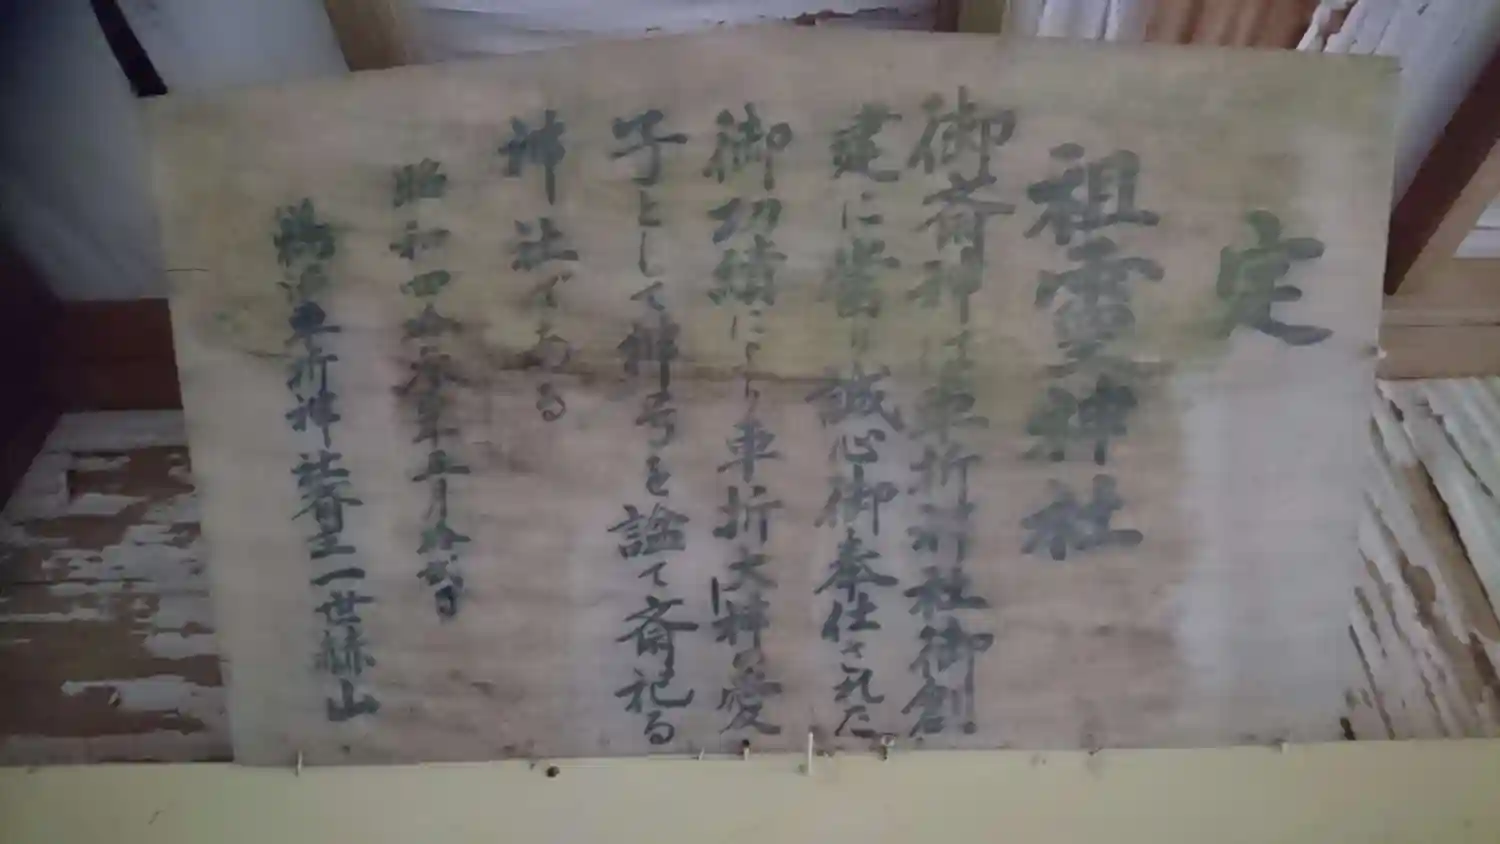 定
祖霊神社
御斎神は車折神社御創
建に当り誠心御奉仕された
御功績により車折大神の愛
子として神号を諡て斎祀る
神社である
昭和四拾年五月拾弐日
車折神社 一世 山